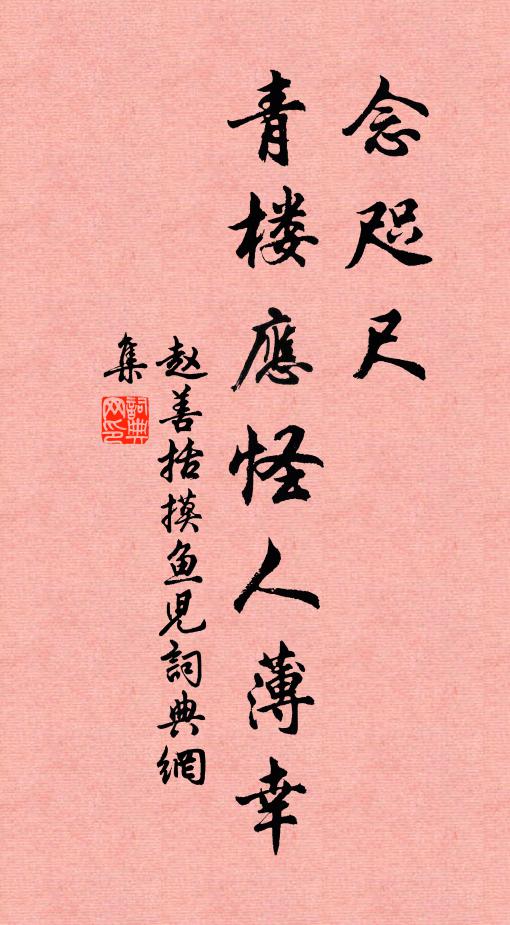 念咫尺
青楼應怪人薄幸
赵善括摸鱼児詞典網
集
詞典网印